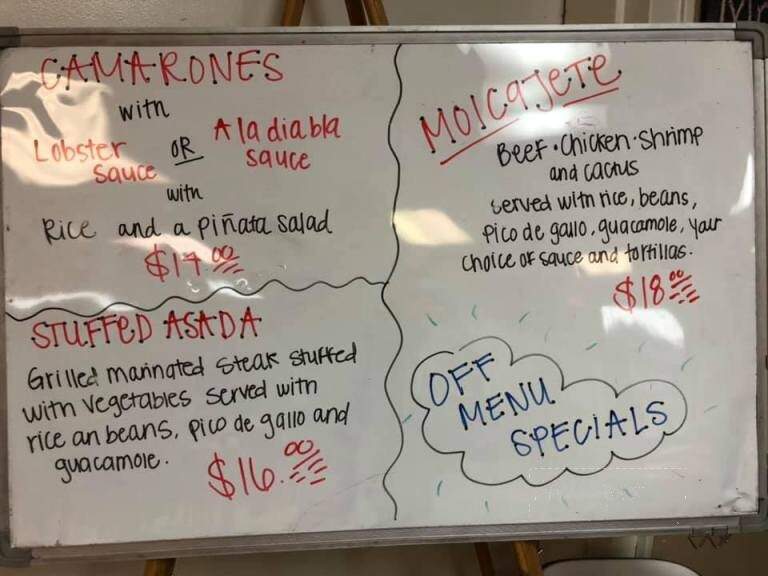 CAMARONES
with
Lobster sauce OR A la diabla sauce
with
Rice and a piñata salad
$17.00
STUFFED ASADA
Grilled marinated steak stuffed
with vegetables served with
rice an beans, pico de gallo and
guacamole.
$16.00
MOLCAJETE
Beef • Chicken • Shrimp
and cactus
served with rice, beans,
pico de gallo, guacamole, your
choice of sauce and tortillas.
$18.00
OFF
MENU
SPECIALS